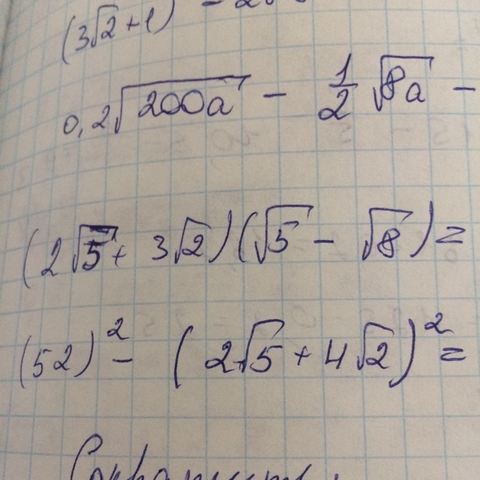 (3√2+1)
0,2√200a − 1/2 √8a −
(2√5+ 3√2)(√5 − √8)=
(52)² − (2√5+4√2)²=